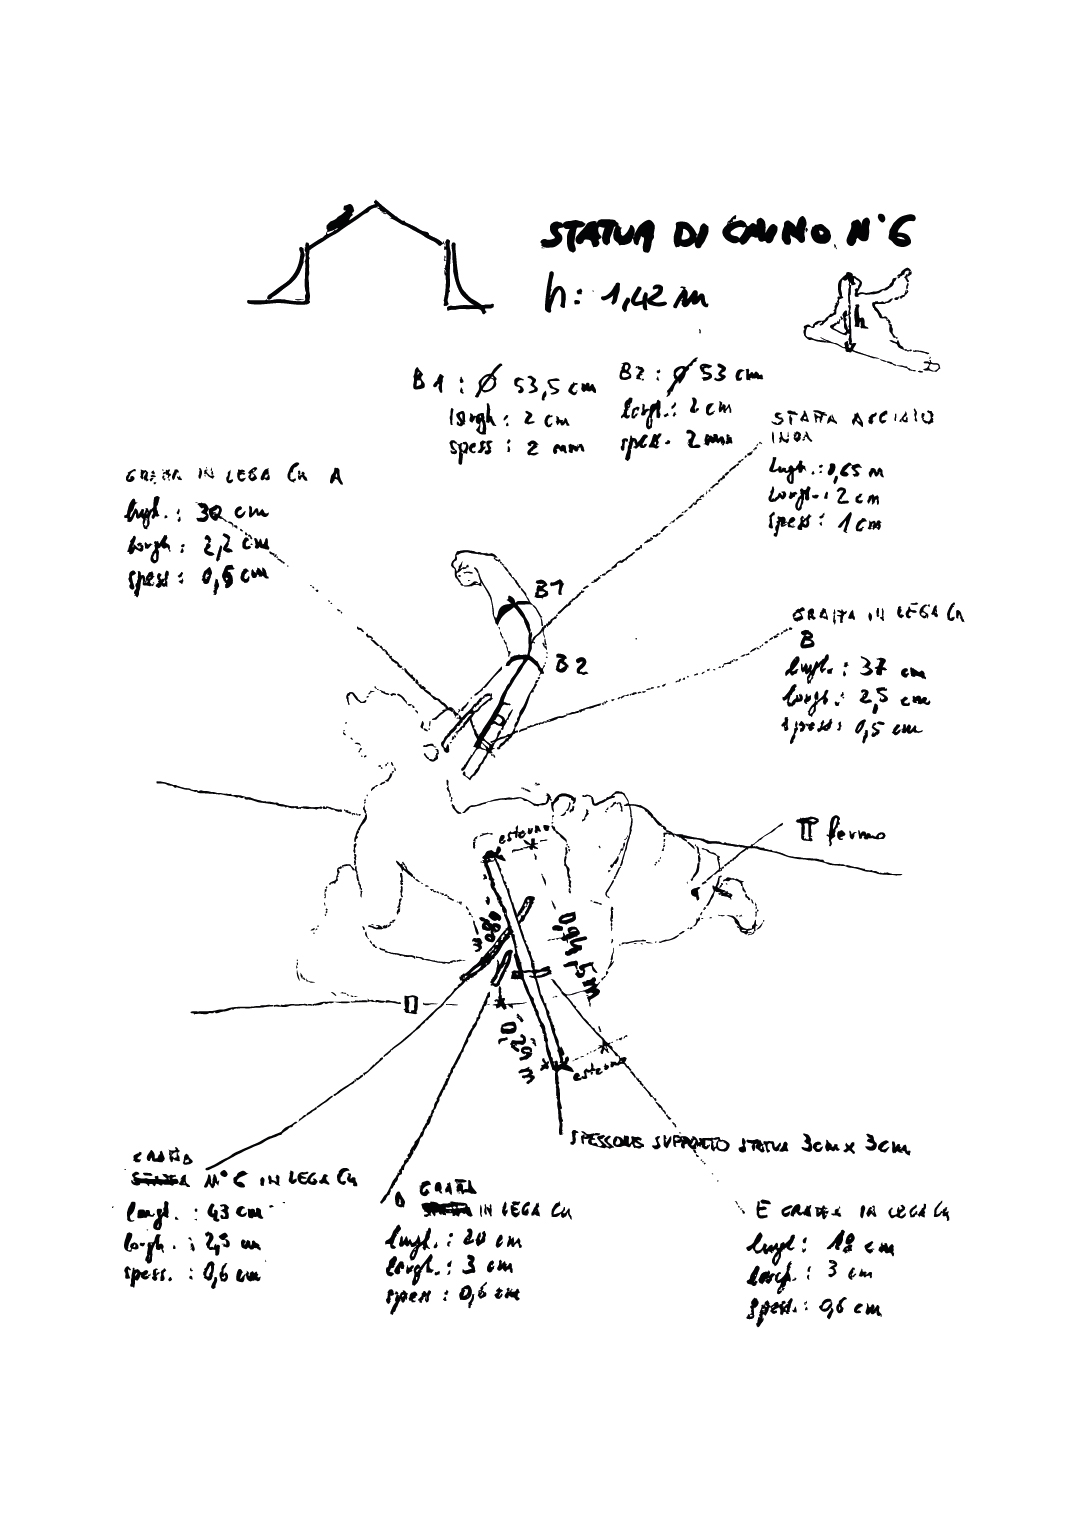 STATUA DI CAINO N°6
h: 1,42 m
h
B1 : Ø 53,5 cm
largh : 2 cm
spess : 2 mm
B2 : Ø 53 cm
largh. : 2 cm
spess. 2 mm
STAFFA ACCIAIO
INOX
lugh. : 0,65 m
largh. : 2 cm
spess : 1 cm
GRAFFA IN LEGA Cu A
lugh. : 30 cm
largh : 2,2 cm
spess : 0,5 cm
B1
B2
GRAFFA IN LEGA Cu
B
lungh. : 37 cm
largh. : 2,5 cm
spess : 0,5 cm
perno
esterno
0,80 m
0,94,5 m
0,29 m
esterno
SPESSORE SUPPORTO STATUA 3cm x 3cm
GRAFFA
N° C IN LEGA Cu
lungh. : 43 cm
largh. : 2,5 cm
spess. : 0,6 cm
D GRAFFA
IN LEGA Cu
lungh. : 20 cm
largh. : 3 cm
spess : 0,6 cm
E GRAFFA IN LEGA Cu
lungh : 18 cm
largh. : 3 cm
spess. : 0,6 cm